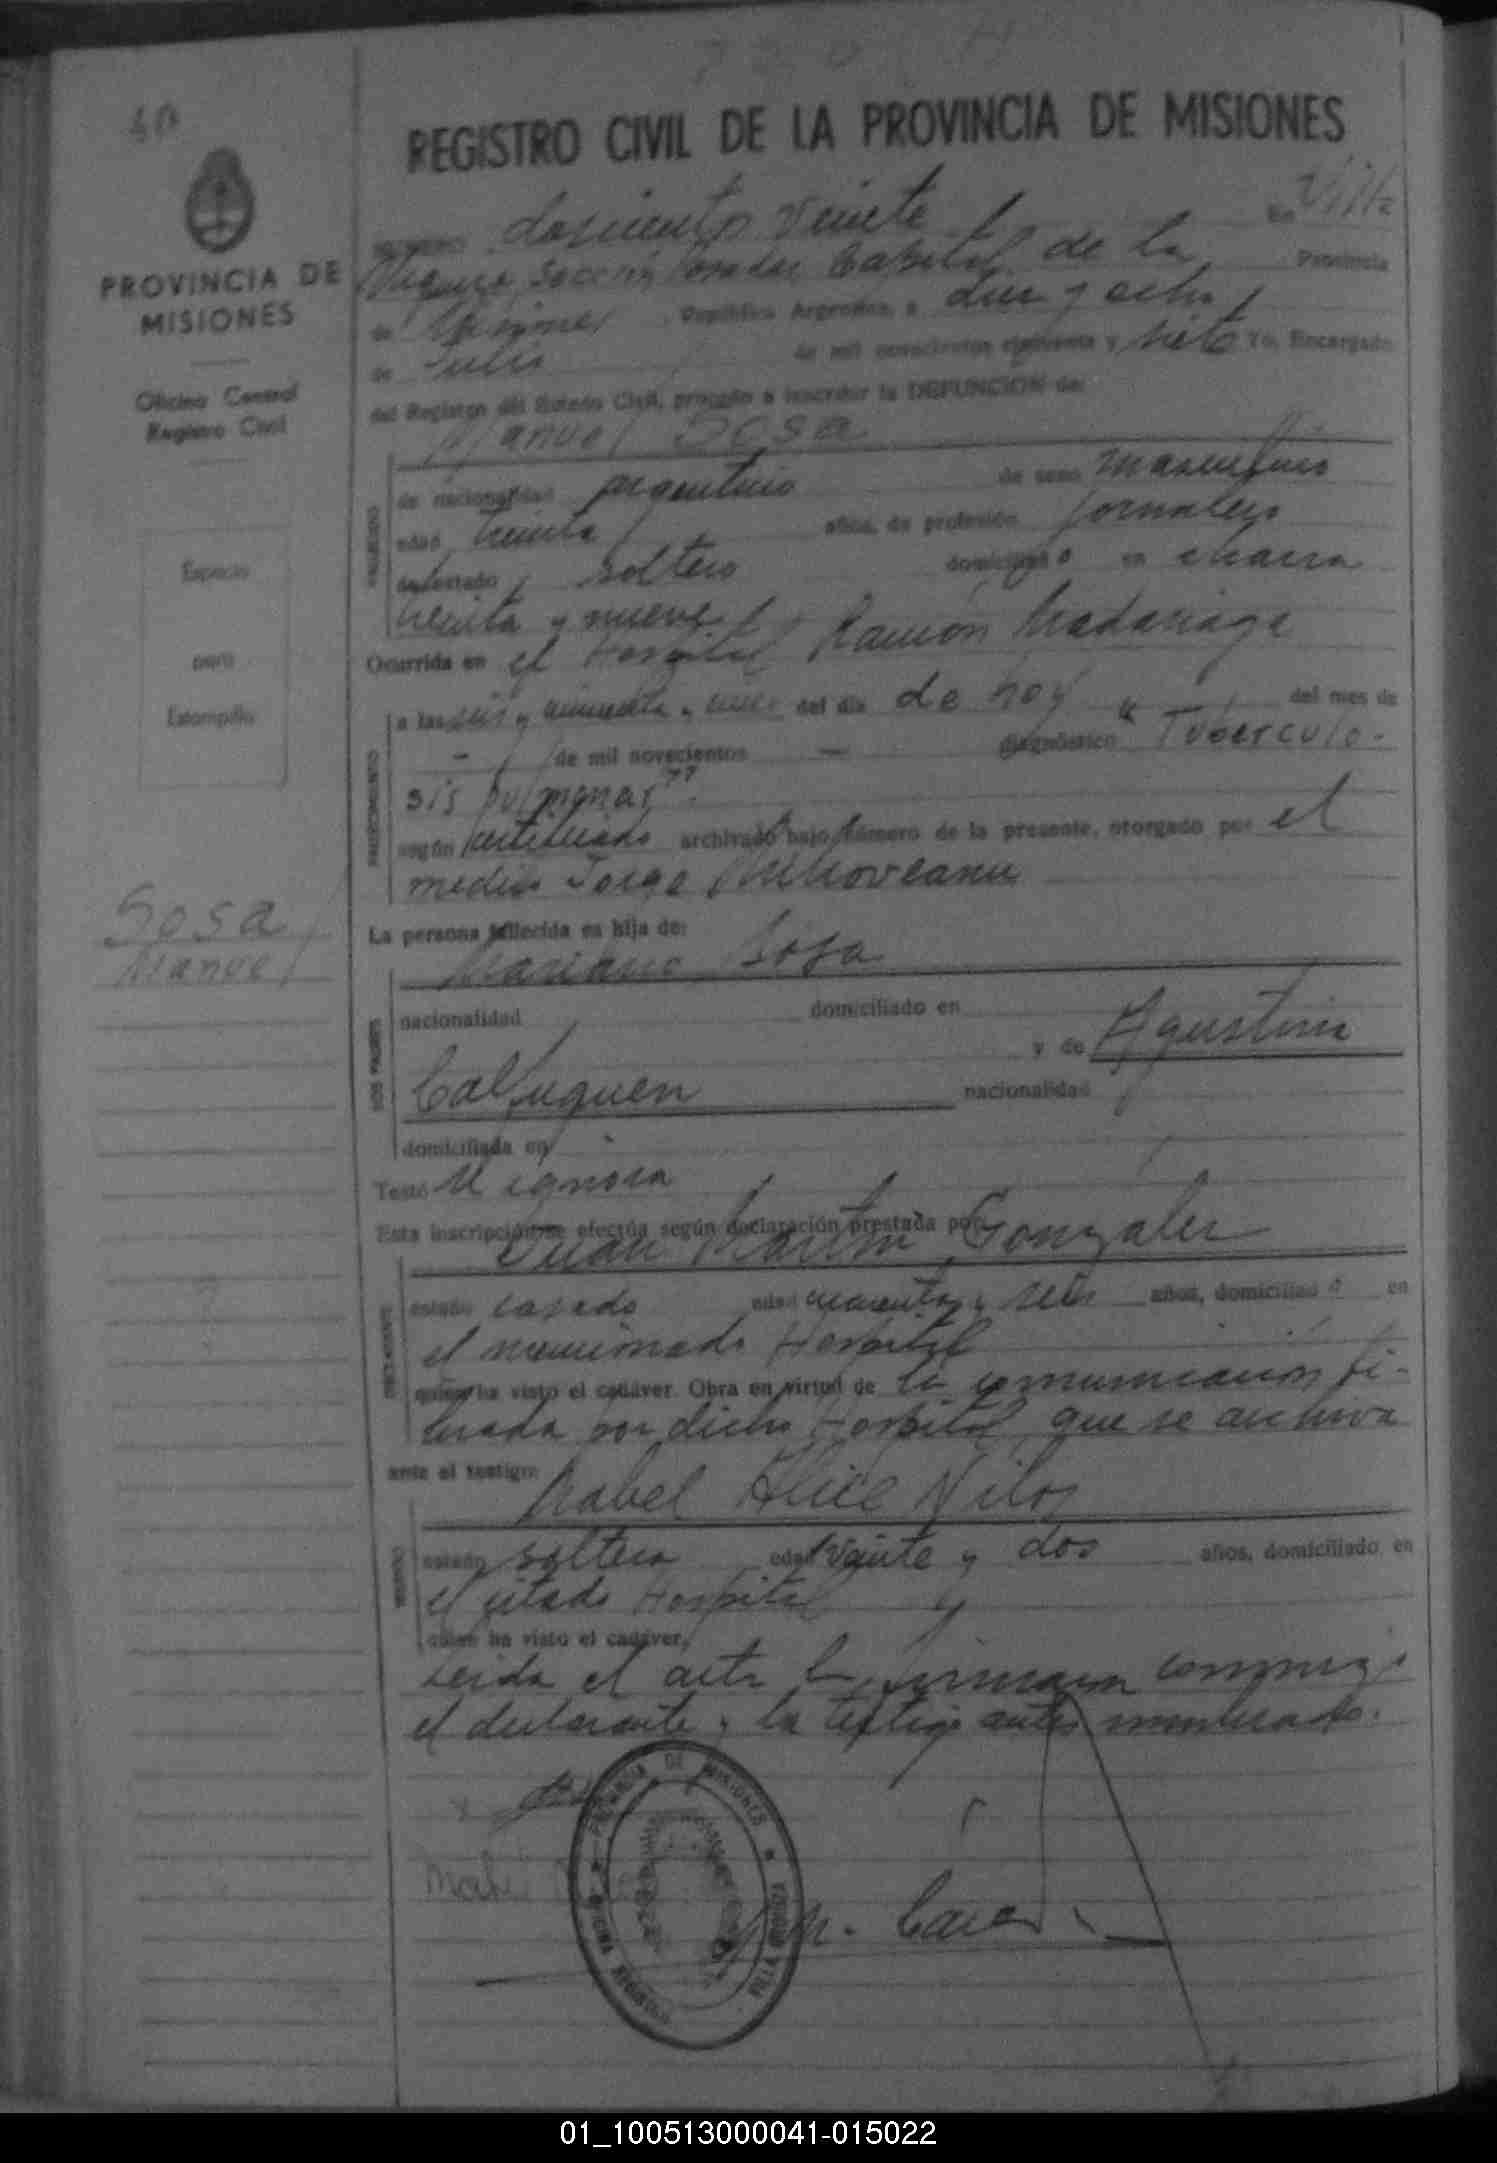 REGISTRO CIVIL DE LA PROVINCIA DE MISIONES
PROVINCIA DE
MISIONES
Oficina Central
Registro Civil
Espacio
para
Estampilla
Sosa
Manuel
doscientos veinte En Villa
Sección Posadas Capital de la Provincia
de Misiones República Argentina, a diez y ocho
de Julio de mil novecientos cincuenta y siete Yo, Encargado
del Registro del Estado Civil, procedo a inscribir la DEFUNCION de:
Manuel Sosa
de nacionalidad argentino de sexo masculino
edad treinta años, de profesión jornalero
de estado soltero domiciliado en chacra
treinta y nueve
Ocurrida en el Hospital Ramón Madariaga
a las seis y cincuenta y cinco del día de hoy del mes de
- de mil novecientos — diagnóstico "Tubérculo-
sis pulmonar".
según certificado archivado bajo número de la presente, otorgado por el
médico Jorge
La persona fallecida es hija de:
Mariano Sosa
nacionalidad domiciliado en
y de Agustina
nacionalidad
domiciliada en
Testó se ignora
Esta inscripción se efectúa según declaración prestada por:
Juan Martín González
estado casado edad cuarenta y seis años, domiciliado en
el mencionado Hospital
quien ha visto el cadáver. Obra en virtud de la comunicación fi-
rmada por dicho Hospital que se archiva
ante el testigo:
Mabel Alice
estado soltera edad veinte y dos años, domiciliado en
el citado Hospital y
quien ha visto el cadáver.
Leída el acta la firmaron conmigo
el declarante y la testigo antes nombrado.
PROVINCIA DE MISIONES
01_100513000041-015022